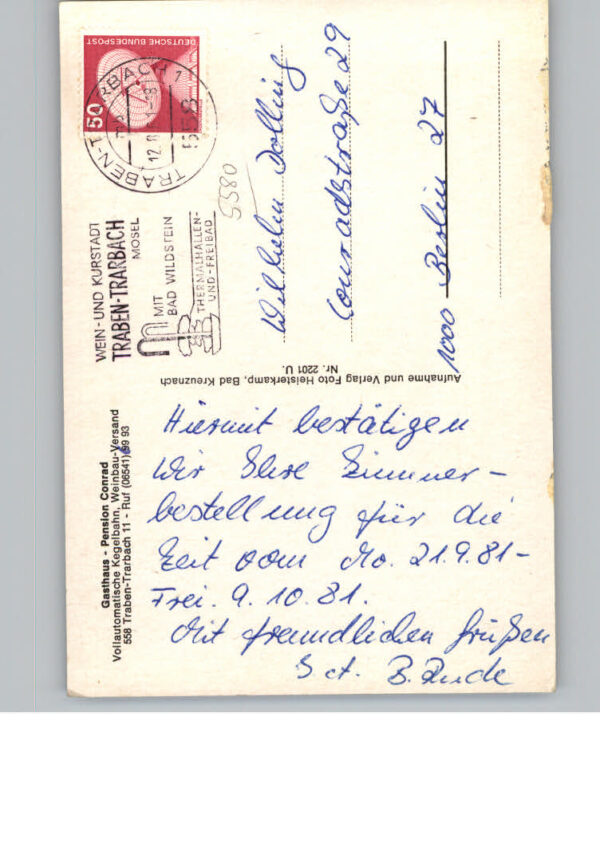 Gasthaus - Pension Conrad
Vollautomatische Kegelbahn, Weinbau-Versand
558 Traben-Trarbach 11 - Ruf (06541) 99 93
Hiermit bestätigen
wir Ihre Zimmer-
bestellung für die
Zeit vom Mo. 21.9.81-
Frei. 9.10.81.
Mit freundlichen Grüßen
Aufnahme und Verlag Foto Heisterkamp, Bad Kreuznach
Nr. 2201 U.
WEIN- UND KURSTADT
TRABEN-TRARBACH
MOSEL
MIT
BAD WILDSTEIN
THERMALHALLEN-
UND-FREIBAD
DEUTSCHE BUNDESPOST
50
TRABEN-TRARBACH 1
5580
Wilhelm Dolling
Conradstraße 29
1000 Berlin 27